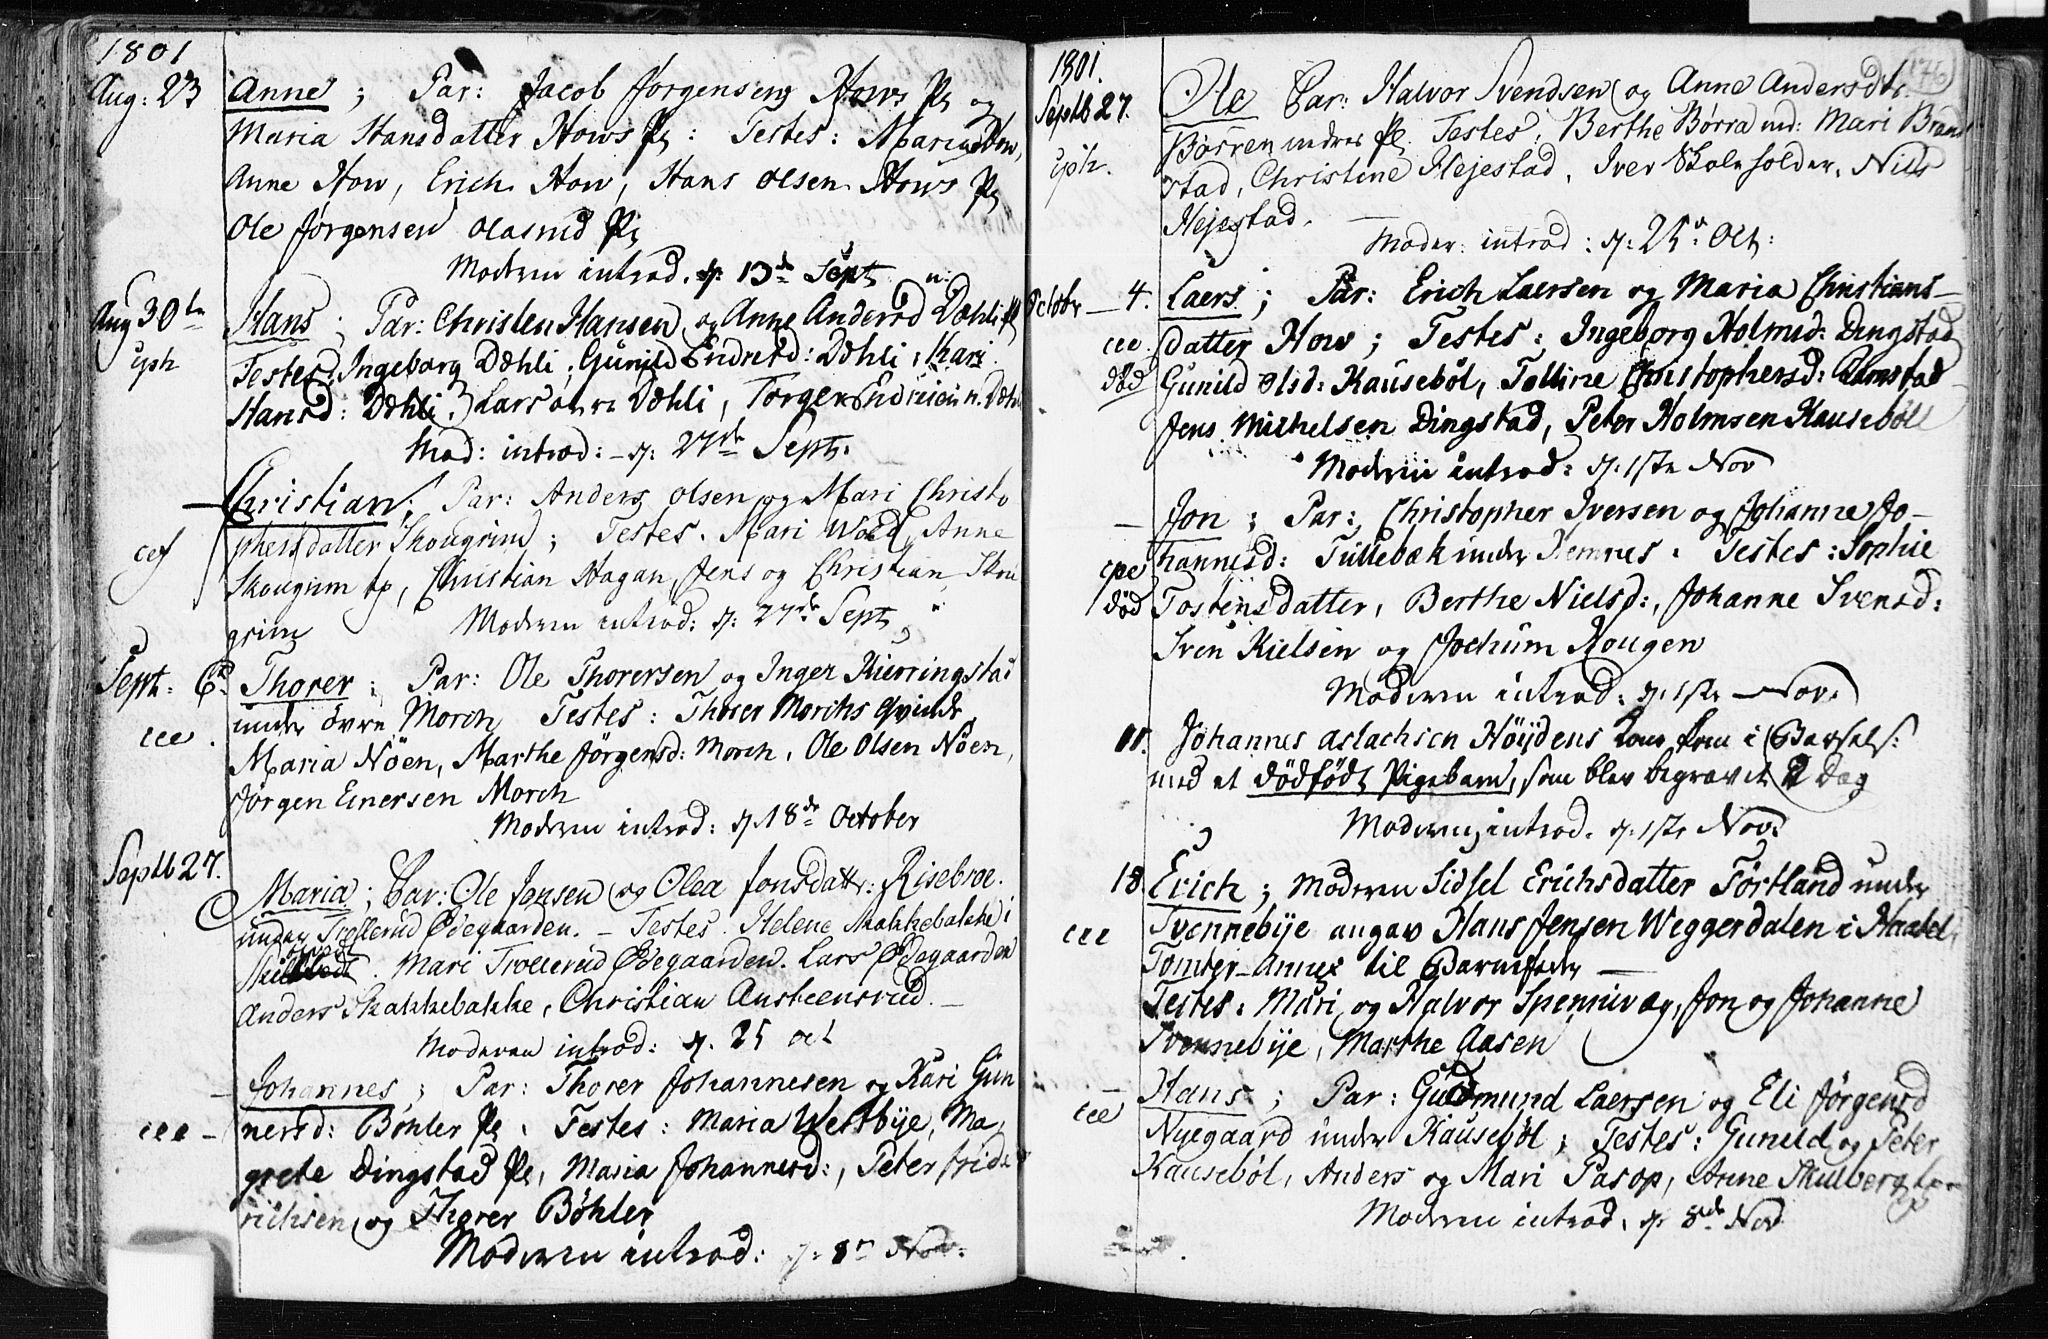 1801
Aug: 23 Anne; Par: Jacob Jørgensen Hows Pl og
Maria Hansdatter Hows Pl: Testes: Maria How,
Anne How, Erich How, Hans Olsen Hows Pl
Ole Jørgensen Olasrud Pl
Moderen introd. d: 13de Sept
Aug 30te Hans; Par: Christen Hansen og Anne Andersd Dæhli Pl
Testes: Ingeborg Dæhli, Gunild Endresd: Dæhli, Kari
Hansd: Dæhli, Lars Dæhli, Torger Dæhli
Mod: introd: d: 27de Sept.
Christian; Par: Anders Olsen og Mari Christo
phersdatter Skougrim; Testes. Mari Anne
Skougrim, Christian Hagan, Jens og Christian Skou
grim Moderen introd: d: 27de Sept
Sept: 6te Thorer; Par: Ole Thorersen og Inger Kierringstad
under øvre Morch Testes: Thorer Morchs Qvinde
cee Maria Nöen, Marthe Jörgensd: Morch, Ole Olsen Nöen,
Jörgen Einersen Morch
Moderen introd: d. 18de October
Septb 27. Maria; Par: Ole Jensen og Olea Jonsdattr: Risebroe
under Trollerud Ødegaarden. – Testes. Helene Skakkebakke i
Mari Trollerud Ødegaarden. Lars Ødegaarden
Anders Skakkebakke, Christian Austeensrud. –
Moderen introd: d. 25 oct
– Johannes; Par: Thorer Johannesen og Kari Gun
cee – nersd: Böhler Pl. Testes: Maria Westbye, Ma
grete Dingstad Pl, Maria Johannesd:, Peter Frid
richsen og Thorer Böhler
Moderen introd: d: 8de Nov:
176
1801.
Septb 27. Ole Par: Halvor Svendsen og Anne Andersdtr.
Børren nedre Pl. Testes: Berthe Børra Mari Brand
stad, Christine Hejestad, Iver Skoleholder, Niels
Hejestad.
Moder: introd: d: 25de Oct:
October – 4. Laers; Par: Erich Laersen og Maria Christians–
cee datter How; Testes: Ingeborg Holmsd: Dingstad
död Gunild Olsd: Kauseböl, Tolline Christophersd: Ramstad
Jens Michelsen Dingstad, Peter Holmsen Kauseböll
Moderen introd: d. 1ste Nov
– Jon; Par: Christopher Iversen og Johanne Jo–
cpe hannesd: Tullebæk under Hemnes. Testes: Sophie
död Tostensdatter, Berthe Nielsd:, Johanne Svensd:
Sven Kielsen og Jochum Hougen
Moderen introd: d. 1ste Nov.
11. Johannes Aslachsen Höydens Kone kom i Barsels:
med et dödfödt Pigebarn, som blev begravet Dag
Moderen introd. d. 1ste Nov.
18 Erich; Moderen Sidsel Erichsdatter Törtland under
cee Tvennebye angav Hans Jensen Weggerdalen i Haabel
Tomter Annex til Barnefader –
Testes: Mari og Halvor Spennivag, Jon og Johanne
Tvennebye, Marthe Aasen
– Hans; Par: Gudmund Laersen og Eli Jørgensd
cee Nyegaard under Kauseböl; Testes: Gunild og Peter
Kauseböl, Anders og Mari Pasop, Anne Skulberg
Moderen introd. d. 8de Nov